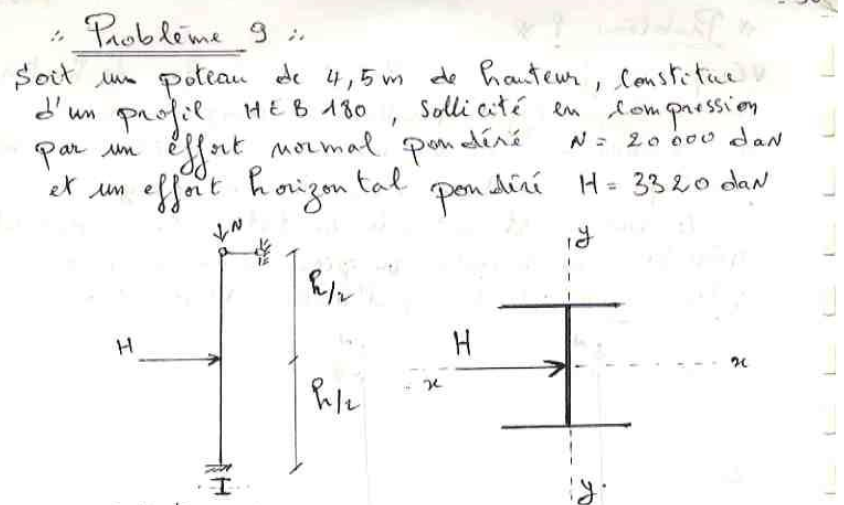 ∴ Problème 9 ∴
Soit un poteau de 4,5 m de hauteur, Constitué
d'un profil HEB 180, Sollicité en compression
par un effort normal pondéré N = 20 000 daN
et un effort horizontal pondéré H = 3320 daN
N
h/2
H
h/2
I
y
H
x
x
y